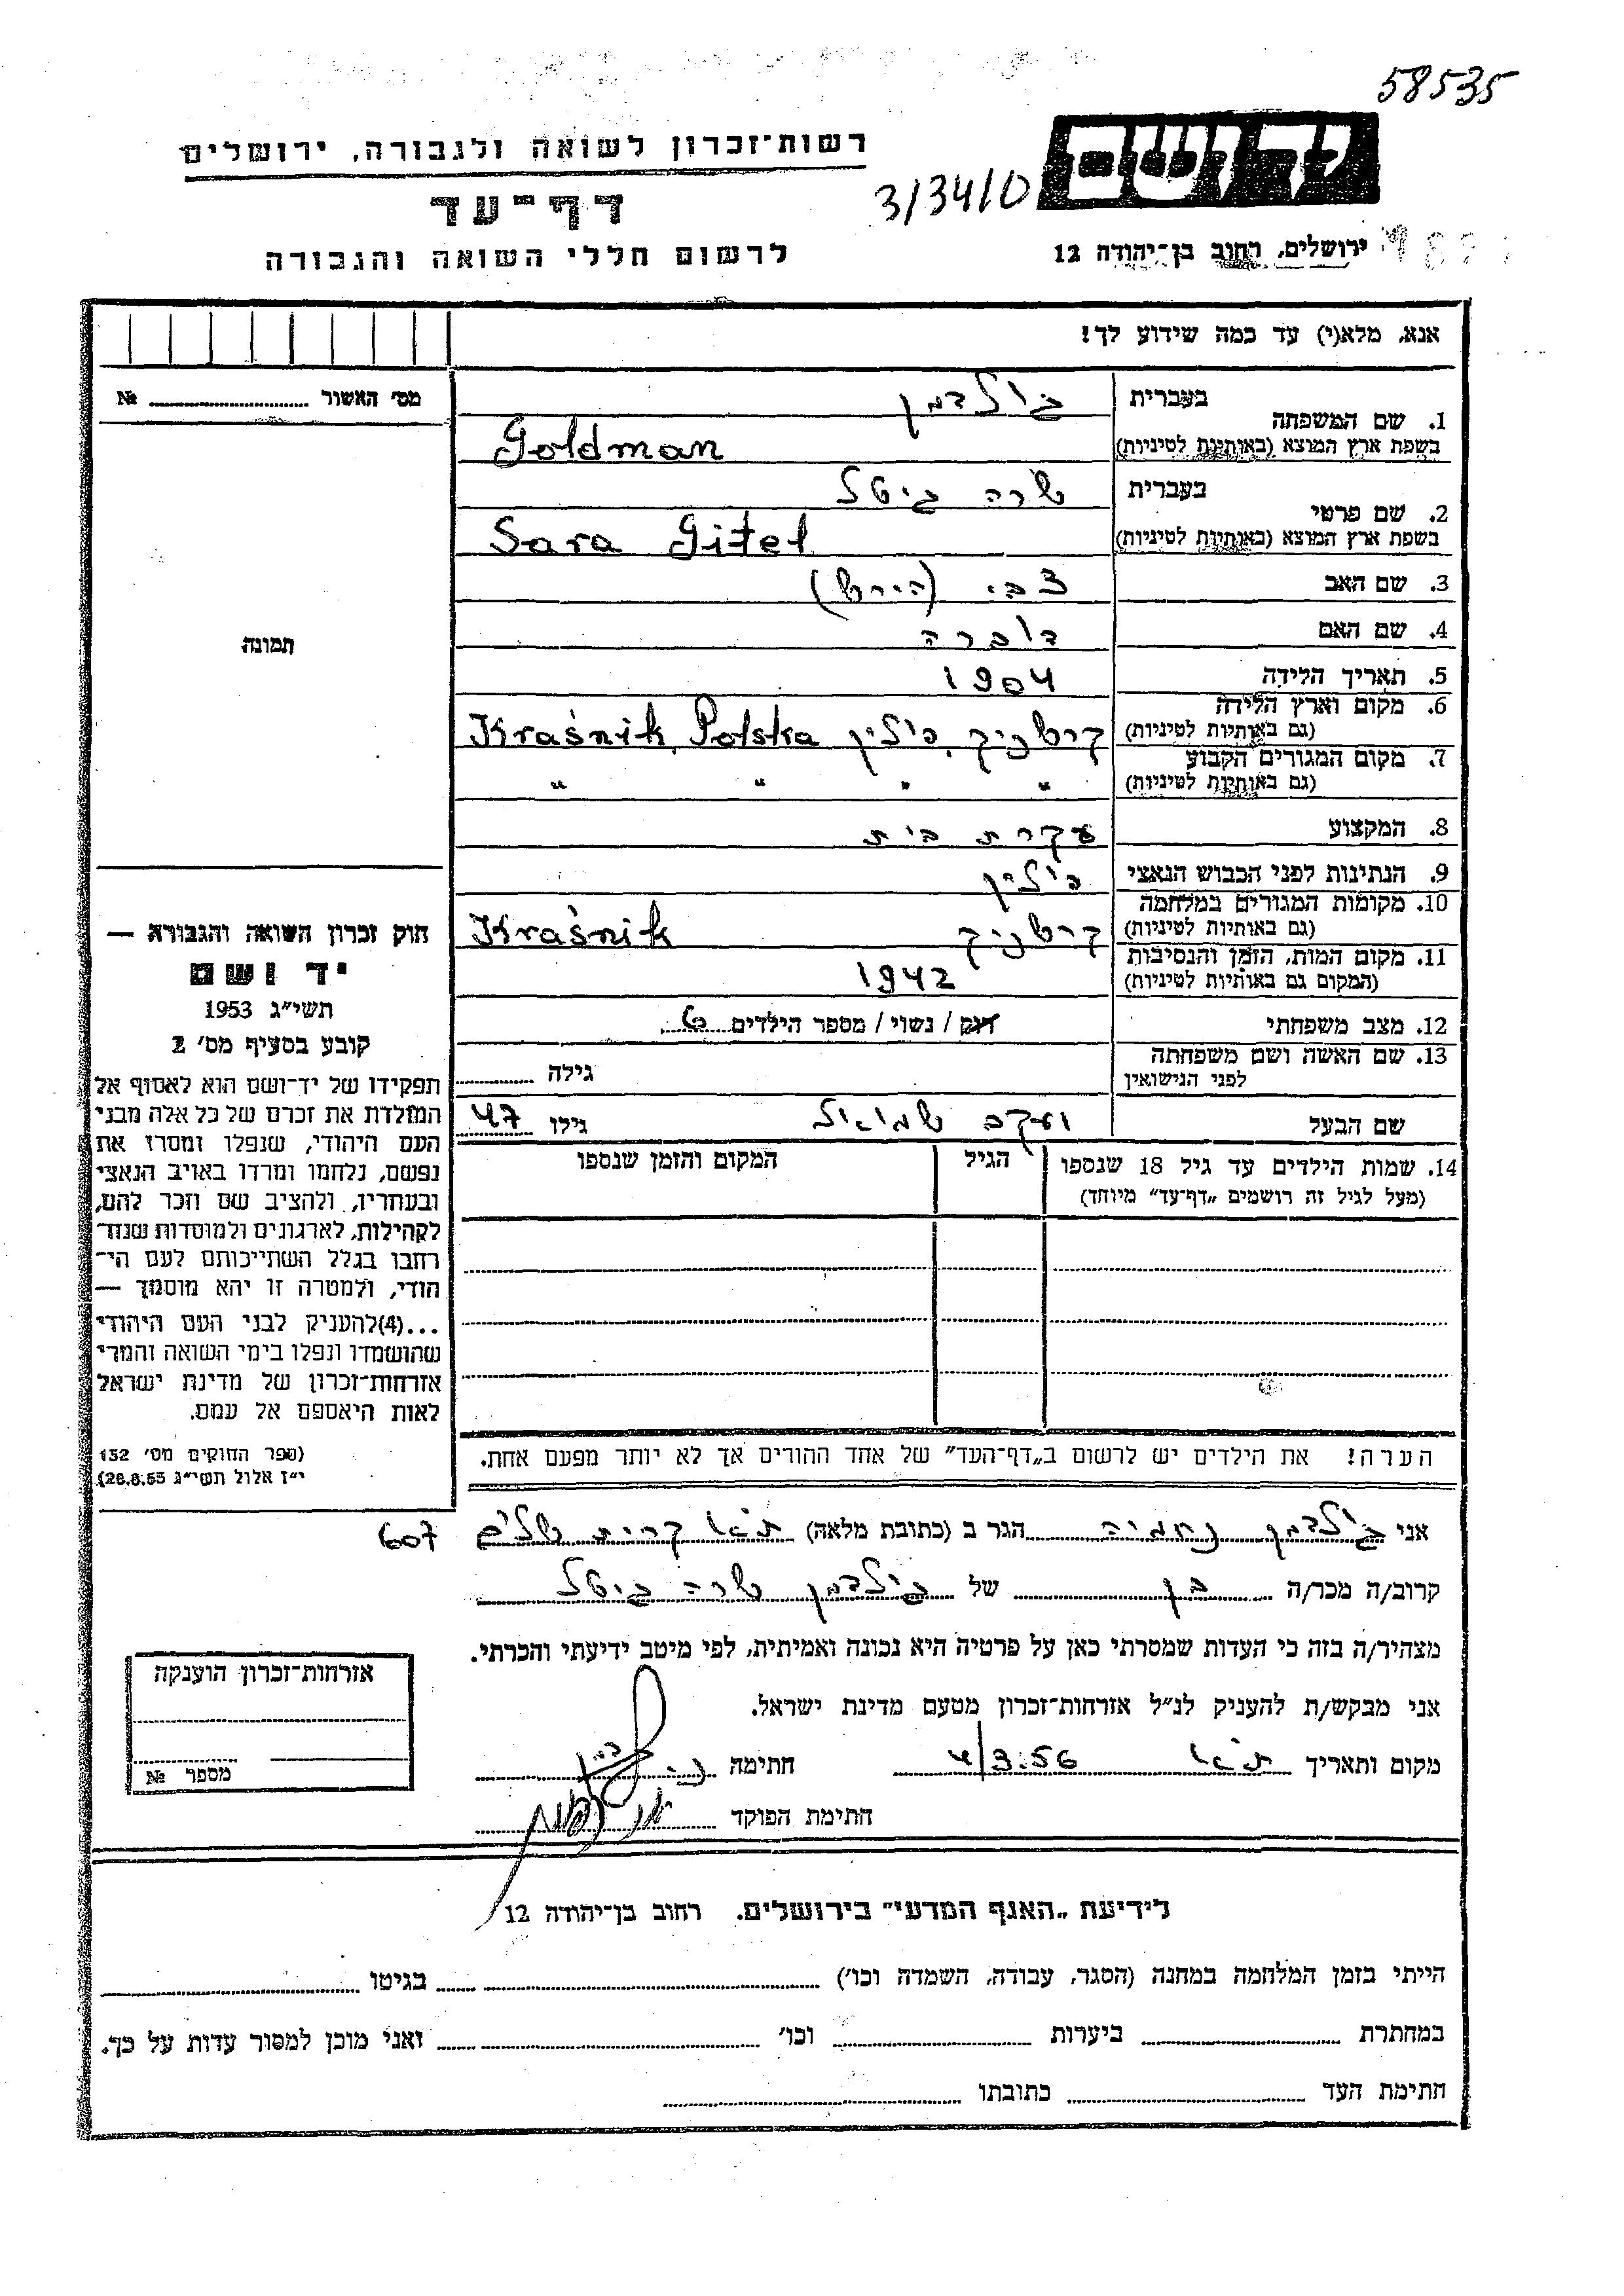 58535
יד ושם
רשות־זכרון לשואה ולגבורה, ירושלים
3/34/0
דף־עד
ירושלים, רחוב בן־יהודה 12
לרשום חללי השואה והגבורה
אנא, מלא(י) עד כמה שידוע לך!
מס׳ האשור № 
1. שם המשפחה
בעברית גולדמן
בשפת ארץ המוצא (באותיות לטיניות) Goldman
2. שם פרטי
בעברית שרה גיטל
בשפת ארץ המוצא (באותיות לטיניות) Sara Gitel
3. שם האב צבי (הירש)
4. שם האם דוברה
5. תאריך הלידה 1904
6. מקום וארץ הלידה קרשניק, פולין Kraśnik, Polska
(גם באותיות לטיניות)
7. מקום המגורים הקבוע " " " "
(גם באותיות לטיניות)
8. המקצוע עקרת בית
9. הנתינות לפני הכבוש הנאצי פולין
10. מקומות המגורים במלחמה קרשניק Kraśnik
(גם באותיות לטיניות)
11. מקום המות, הזמן והנסיבות 1942
(המקום גם באותיות לטיניות)
12. מצב משפחתי רווק / נשוי / מספר הילדים 6
13. שם האשה ושם משפחתה
לפני הנישואין גילה
שם הבעל יעקב שמואל גילו 47
14. שמות הילדים עד גיל 18 שנספו הגיל המקום והזמן שנספו
(מעל לגיל זה רושמים „דף־עד״ מיוחד)
הערה! את הילדים יש לרשום ב„דף־העד״ של אחד ההורים אך לא יותר מפעם אחת.
תמונה
חוק זכרון השואה והגבורה —
יד ושם
תשי״ג 1953
קובע בסעיף מס׳ 2
תפקידו של יד־ושם הוא לאסוף אל
המולדת את זכרם של כל אלה מבני
העם היהודי, שנפלו ומסרו את
נפשם, נלחמו ומרדו באויב הנאצי
ובעוזריו, ולהציב שם וזכר להם,
לקהילות, לארגונים ולמוסדות שנח־
רחבו בגלל השתייכותם לעם הי־
הודי, ולמטרה זו יהא מוסמך —
...(4)להעניק לבני העם היהודי
שהושמדו ונפלו בימי השואה והמרי
אזרחות־זכרון של מדינת ישראל
לאות היאספם אל עמם.
(ספר החוקים מס׳ 132
י״ז אלול תשי״ג 28.8.53)
אני גולדמן נחמיה הגר ב (כתובת מלאה) ת"א קרית שלום 607
קרוב/ה מכר/ה בן של גולדמן שרה גיטל
מצהיר/ה בזה כי העדות שמסרתי כאן על פרטיה היא נכונה ואמיתית, לפי מיטב ידיעתי והכרתי.
אני מבקש/ת להעניק לנ״ל אזרחות־זכרון מטעם מדינת ישראל.
מקום ותאריך ת"א 4/3.56 חתימה
חתימת הפוקד
אזרחות־זכרון הוענקה
מספר №
לידיעת „האגף המדעי״ בירושלים. רחוב בן־יהודה 12
הייתי בזמן המלחמה במחנה (הסגר, עבודה, השמדה וכו׳) בגיטו
במחתרת ביערות וכו׳ ואני מוכן למסור עדות על כך.
חתימת העד כתובתו